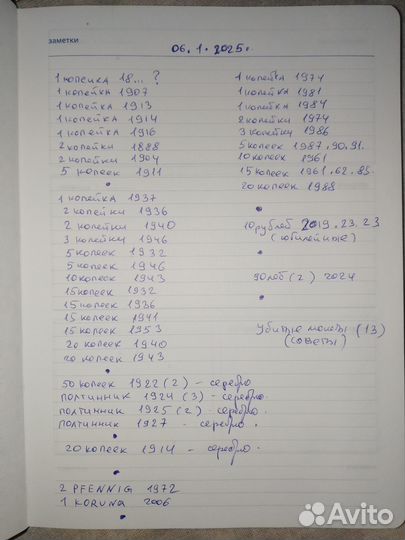 заметки
06.1.2025г.
1 копейка 18...?
1 копейка 1907
1 копейка 1913
1 копейка 1914
1 копейка 1916
2 копейки 1888
2 копейки 1904
5 копеек 1911
1 копейка 1937
2 копейки 1936
2 копейки 1940
3 копейки 1946
5 копеек 1932
5 копеек 1946
10 копеек 1943
15 копеек 1932
15 копеек 1936
15 копеек 1941
15 копеек 1953
20 копеек 1940
20 копеек 1943
50 копеек 1922 (2) - серебро
полтинник 1924 (3) - серебро.
полтинник 1925 (2) - серебро.
полтинник 1927 - серебро.
20 копеек 1914 - серебро.
2 PFENNIG 1972
1 KORUNA 2006
1 копейка 1974
1 копейка 1981
1 копейка 1984
2 копейки 1974
3 копейки 1986
5 копеек 1987.90.91.
10 копеек 1961
15 копеек 1961.62.85.
20 копеек 1988
10 рублей 2019.23.23
(юбилейные)
90 лет (2) 2024
Убитые монеты (13)
(советы)
Avito